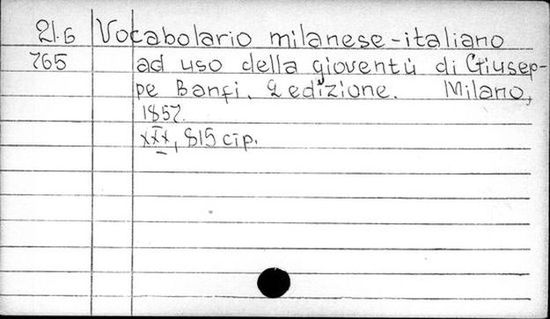 21.6 Vocabolario milanese-italiano
765 ad uso della gioventù di Giusep-
pe Banfi. 2 edizione. Milano,
1857.
XXX, 815 cip.